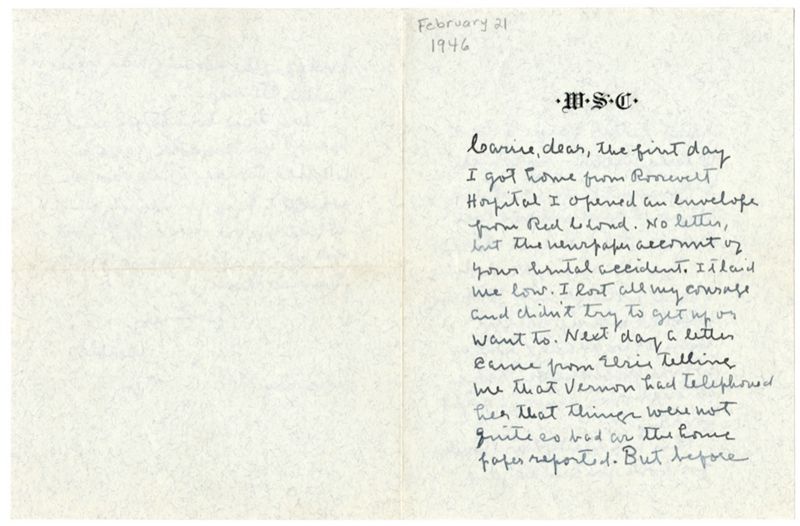 February 21
1946
·W·S·C·
Carrie, dear, the first day
I got home from Roosevelt
Hospital I opened an envelope
from Red Cloud. No letter,
but the newspaper account of
your brutal accident. It laid
me low. I lost all my courage
and didn't try to get up or
want to. Next day a letter
came from Elsie telling
me that Vernon had telephoned
her that things were not
quite so bad as the home
paper reported. But before